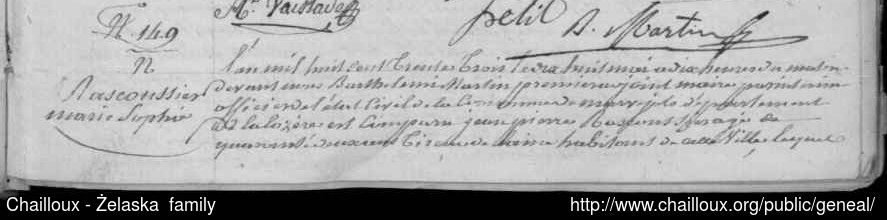 petit
B. Martin
N. 149
N
Rascoussier
marie Sophie
L'an mil huit cent trente trois le dix huit mai a dix heures du matin
devant nous Barthelemi Martin premier adjoint maire
officier de l'état Civil de la Commune de marvejols département
de la lozère est Comparu jean pierre Rascoussier agé de
quarante deux ans Tireur de laine habitant de cette Ville lequel
Chailloux - Żelaska family
http://www.chailloux.org/public/geneal/